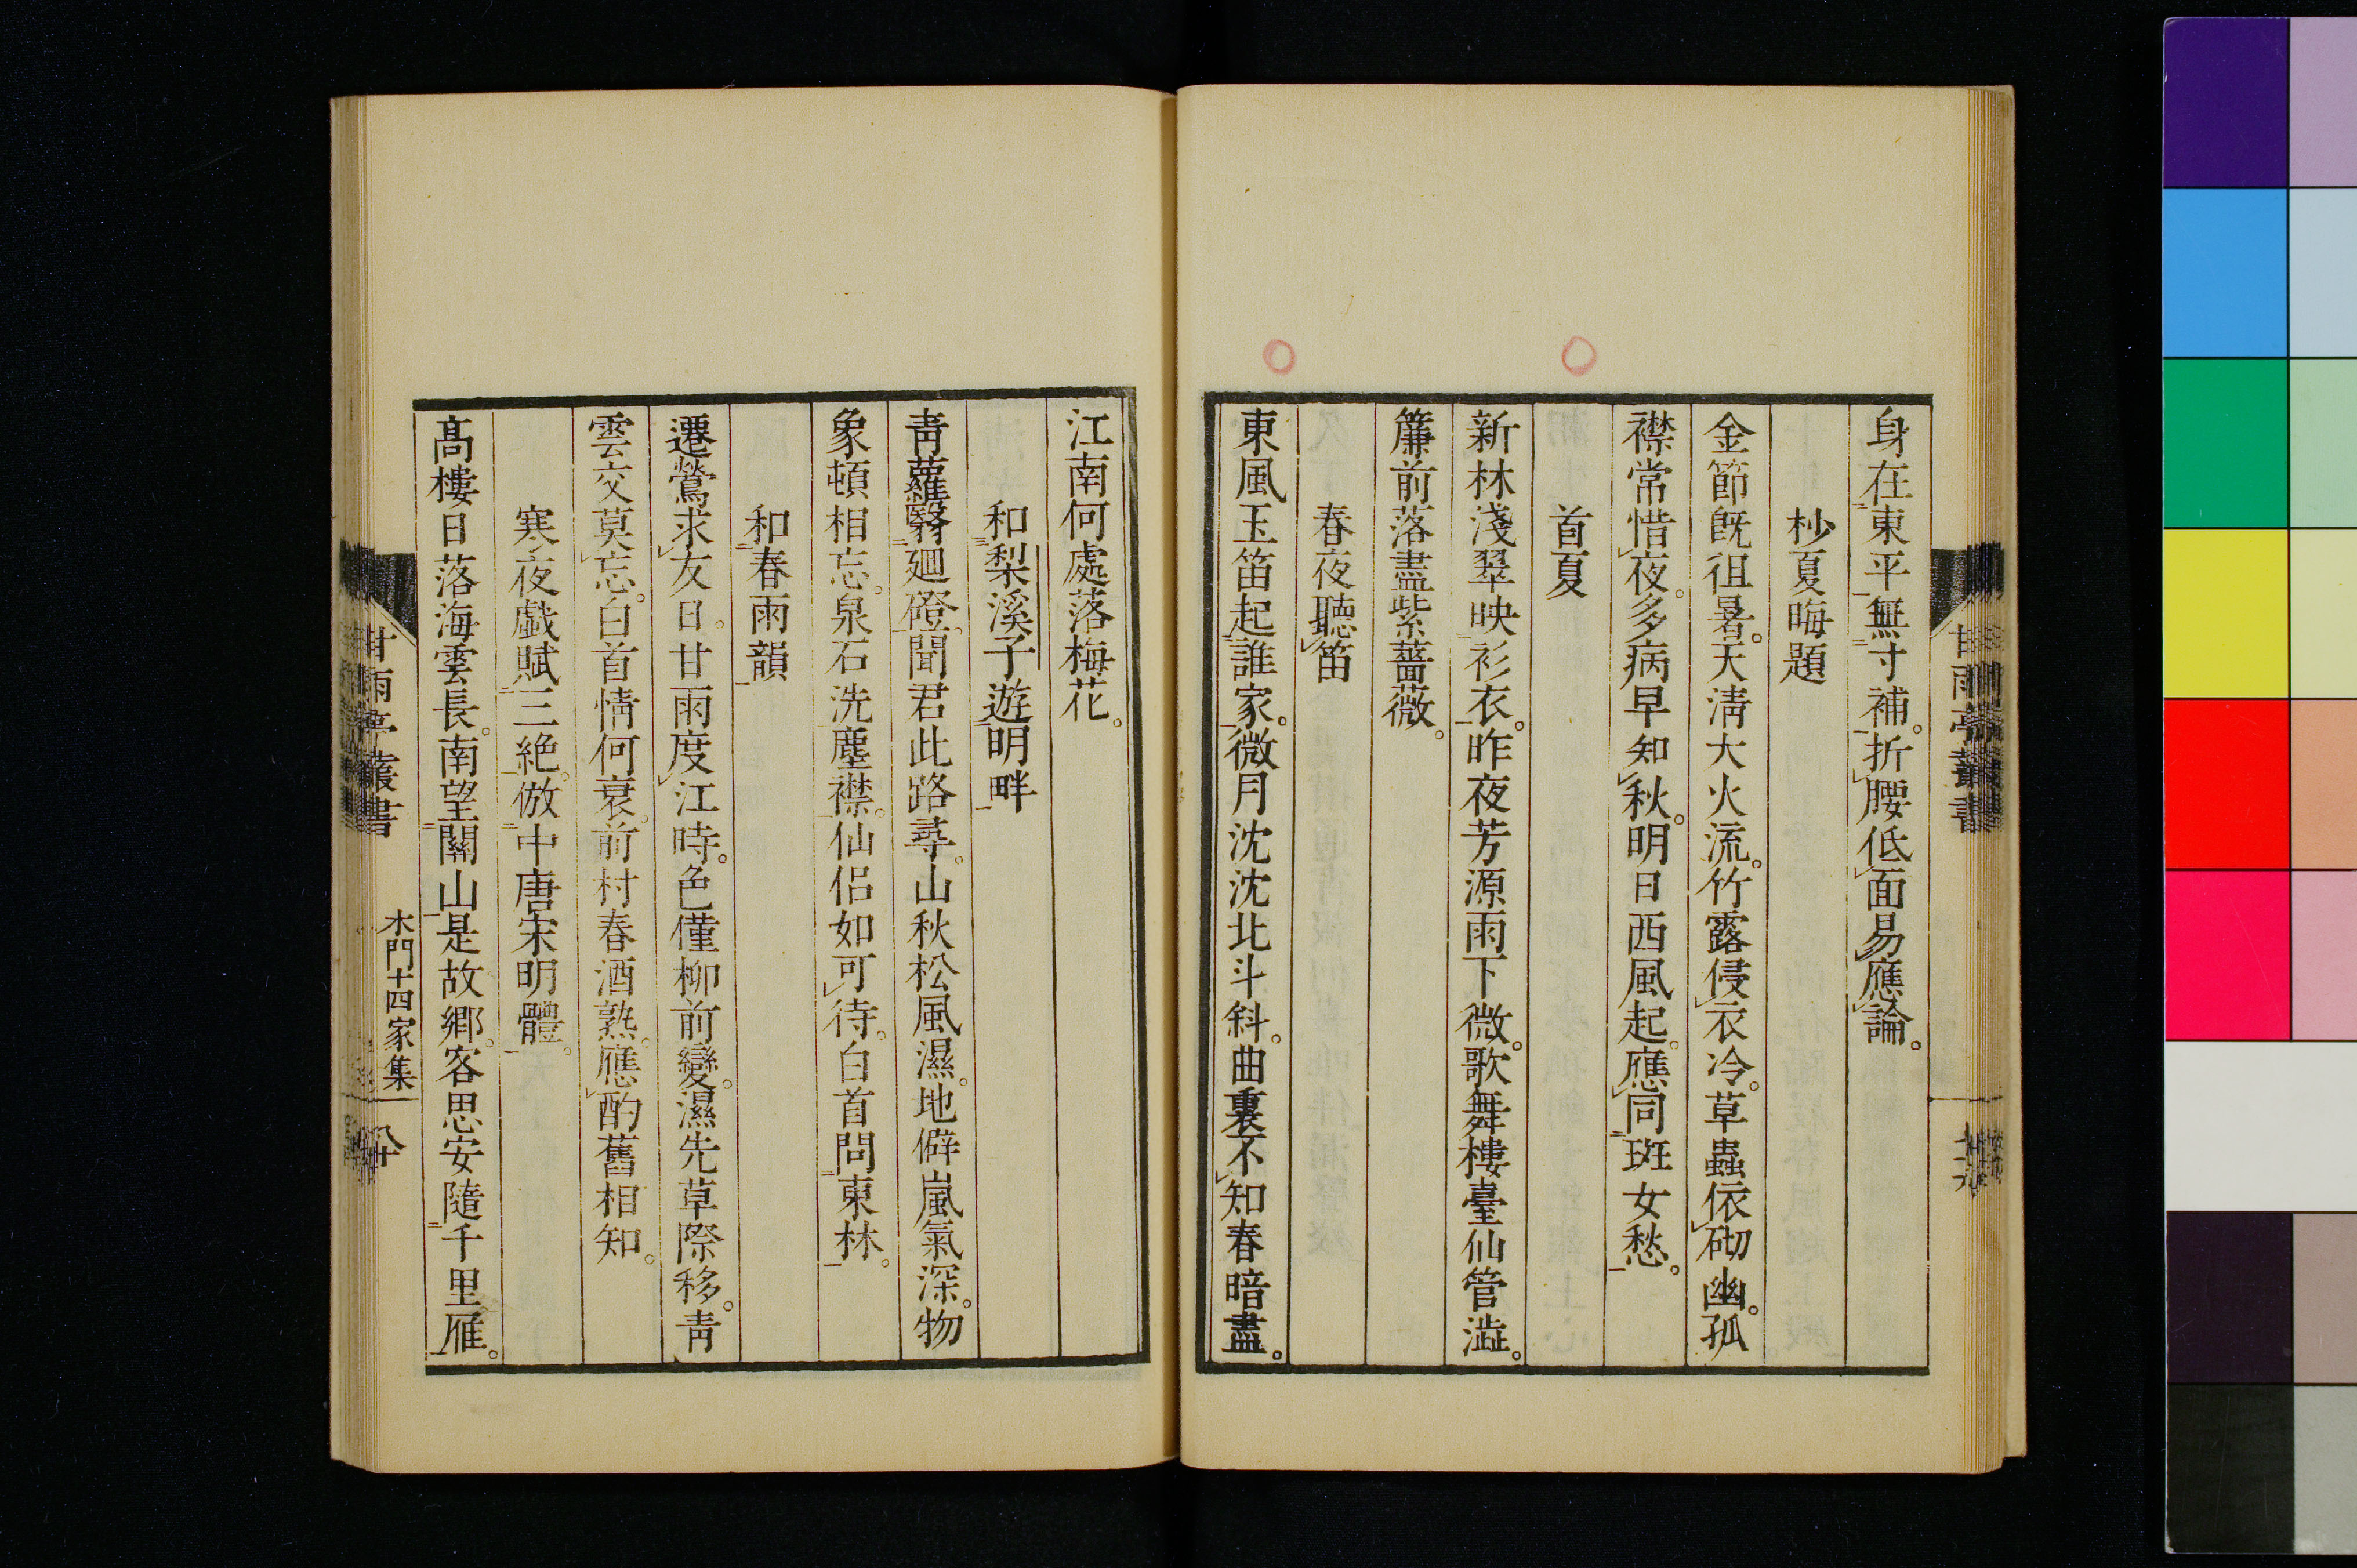 身在東平無寸補。折腰低面易應論。
杪夏晦題
金節旣徂暑。天淸大火流。竹露侵衣冷。草蟲依砌幽。孤
襟常惜夜。多病早知秋。明日西風起。應同班女愁。
首夏
新林淺翠映衫衣。昨夜芳源雨下微。歌舞樓臺仙管澁。
簾前落盡紫薔薇。
春夜聽笛
東風玉笛起誰家。微月沈沈北斗斜。曲裏不知春暗盡。
江南何處落梅花。
和梨溪子遊明畔
靑蘿翳廻磴。聞君此路尋。山秋松風濕。地僻嵐氣深。物
象頓相忘。泉石洗塵襟。仙侶如可待。白首問東林。
和春雨韻
遷鶯求友日。甘雨度江時。色僅柳前變。濕先草際移。靑
雲交莫忘。白首情何衰。前村春酒熟。應酌舊相知。
寒夜戲賦三絕。倣中唐宋明體。
高樓日落海雲長。南望關山是故鄉。客思安隨千里雁。
甘雨亭叢書
木門十四家集
甘雨亭叢書